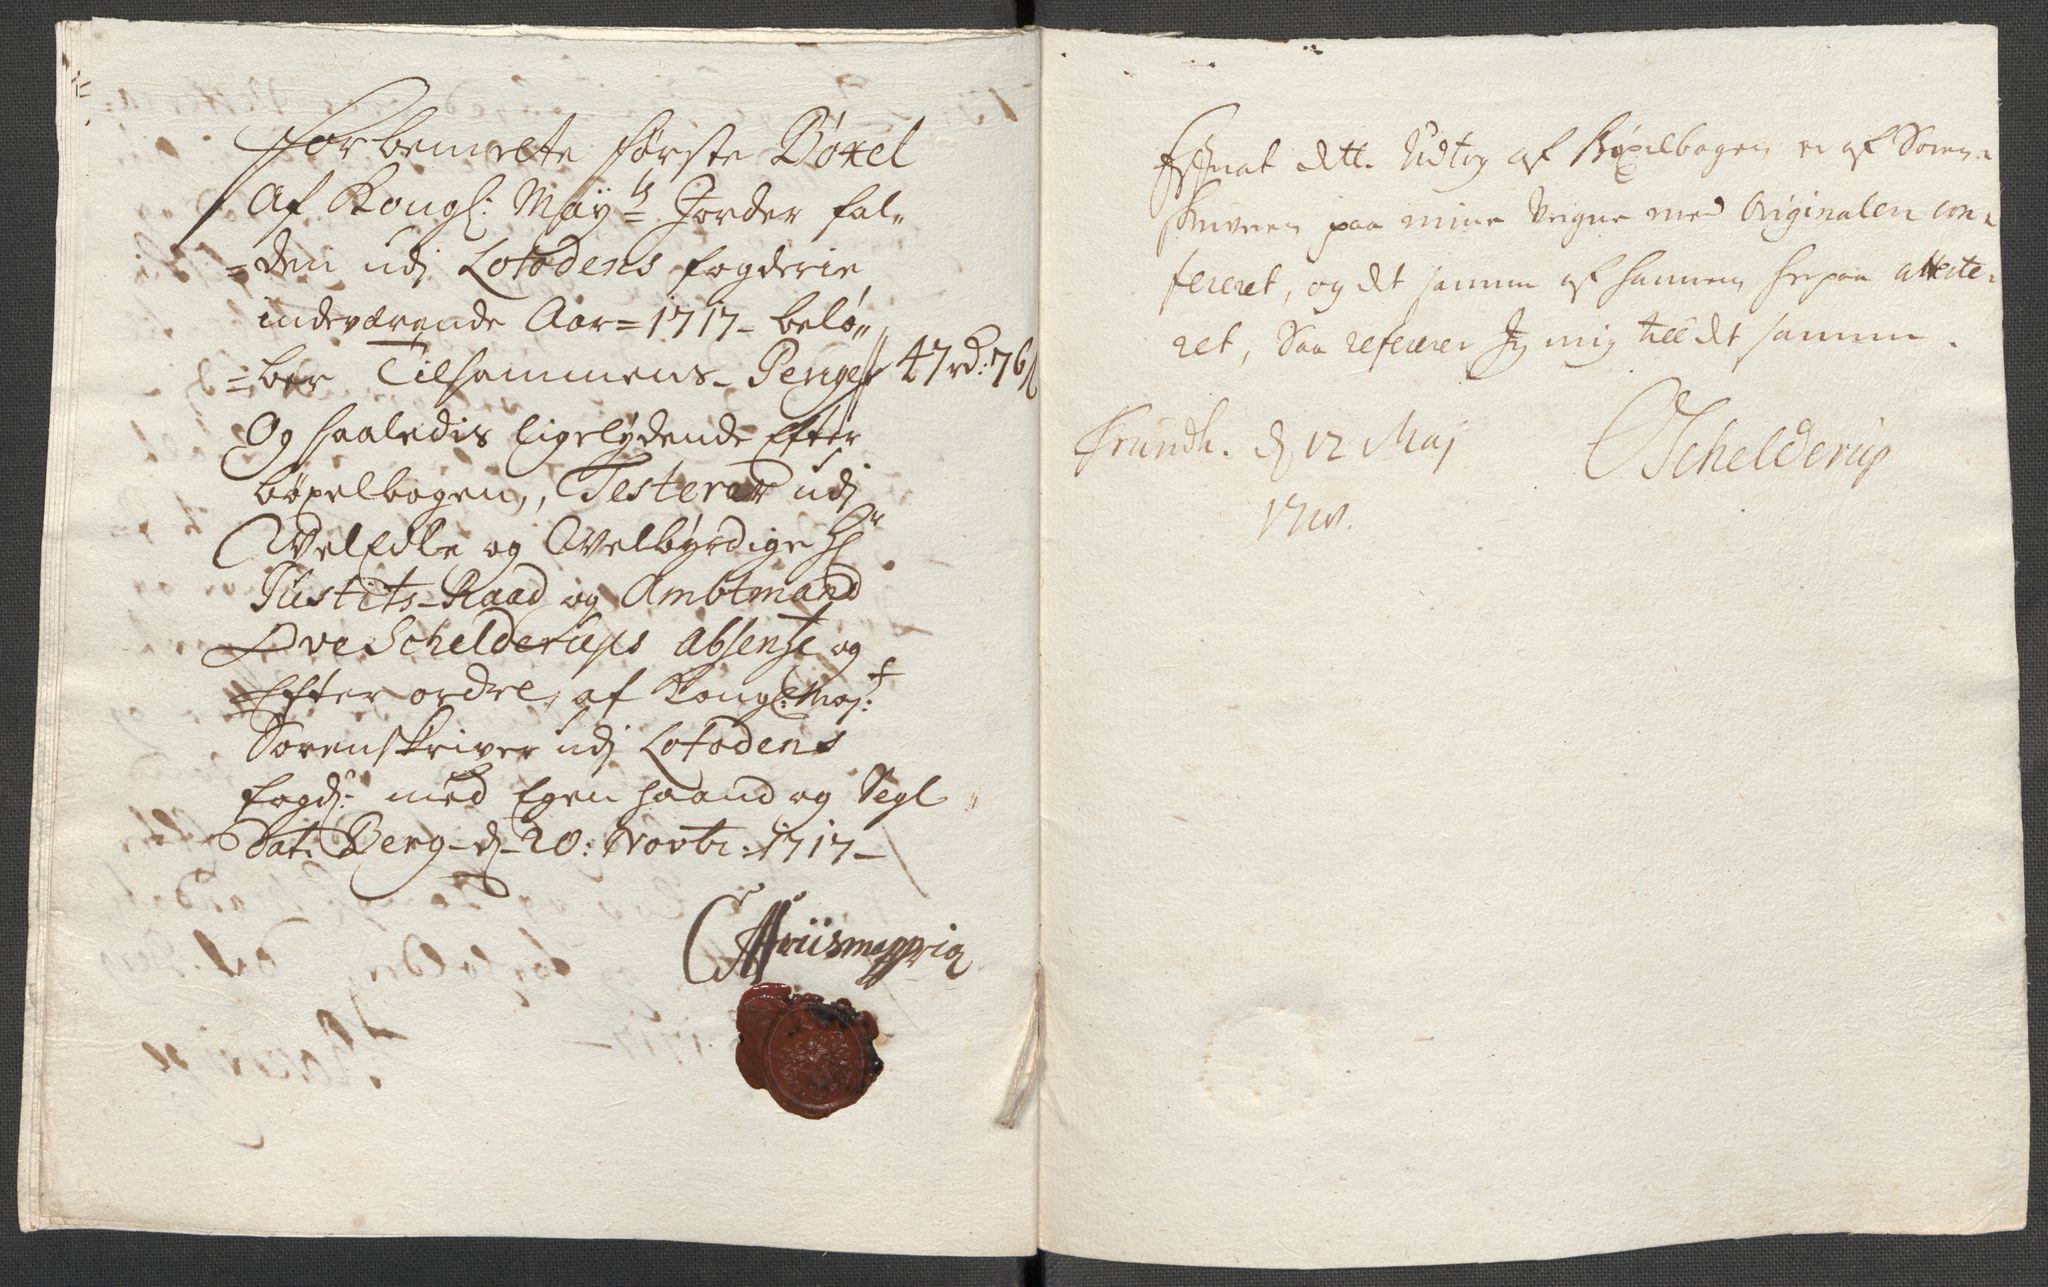 Forbemelte første Böxel
Af Kongl: Mayts Jorder fal„
=den udj Lofodens fogderie
indeværende Aar=1717_ belø„
=ber Tilsammens_ Penge 47 rd: 76 ß
Og saaledis ligelydende Efter
böxelbogen,, Testerer udj
WelEdle og Welbyrdige Hr
Justits_Raad og Ambtmand
Ove Schelderups Absentze og
Efter ordre, af Kongl: Maj:t
Sorenskriver udj Lofodens
fogd: med Egen haand og Segl„
Dat: Berg_d_20: Novbr: 1717_
mappria
Efterat dette Udtog af Böxelbogen er af Soren=
skriveren paa mine Veigne med Originalen con=
fereret, og det samme af hannem herpaa atteste=
ret, Saa referer Jeg mig till det samme.
Trundh. d 12 Maj
OSchelderup